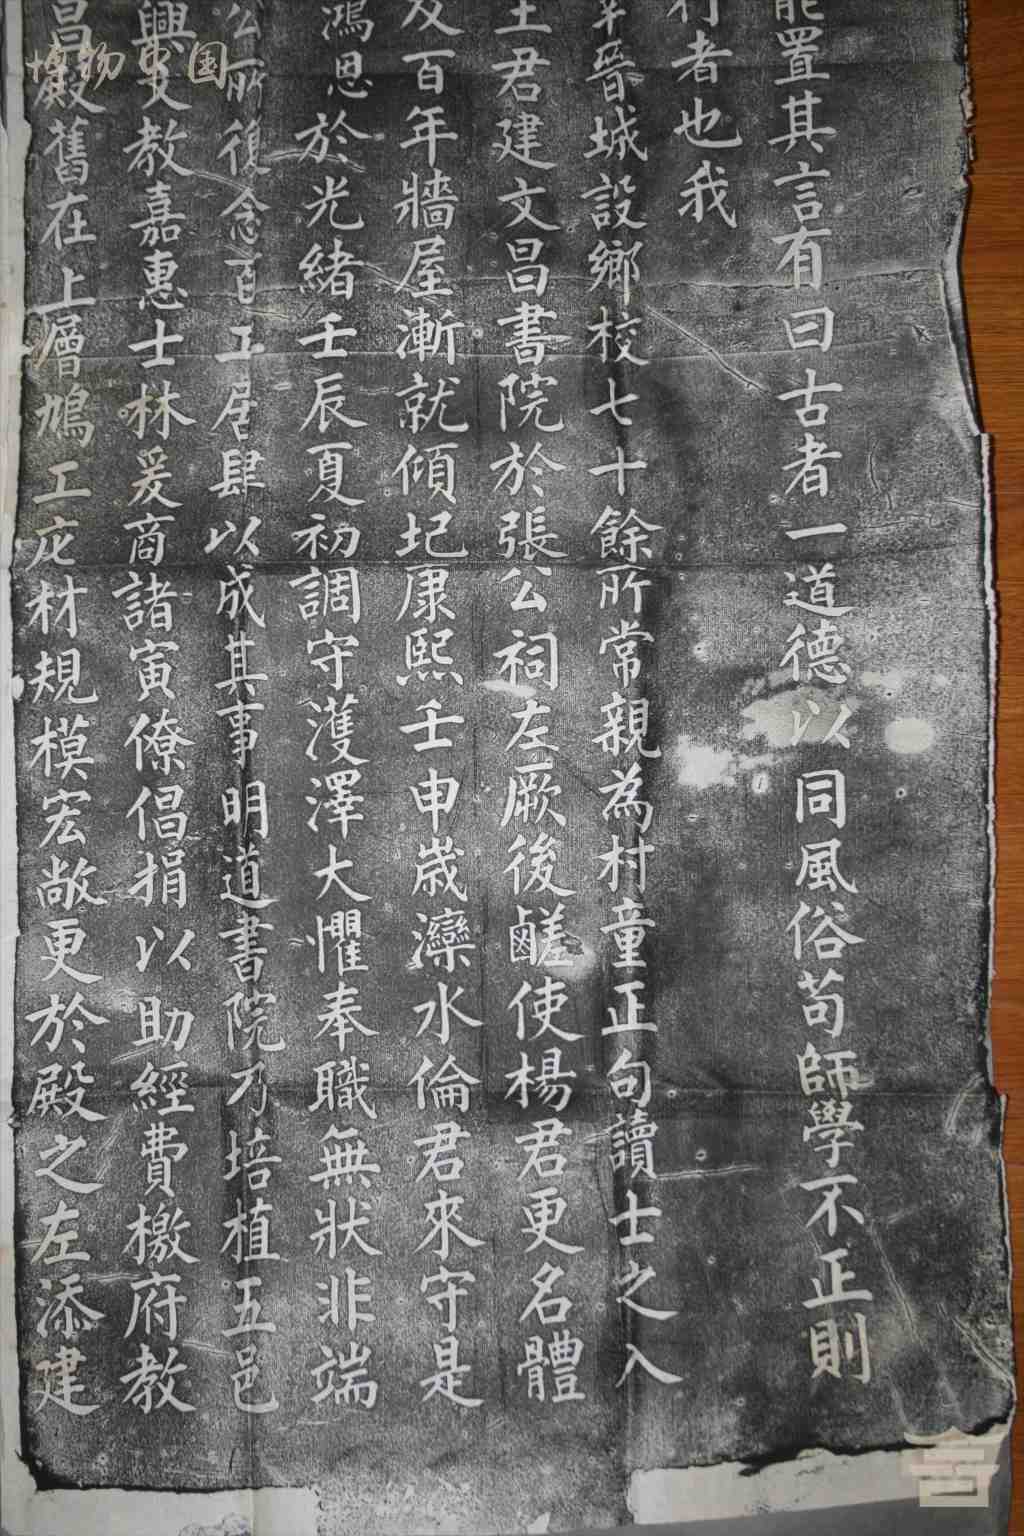 能置其言有曰古者一道德以同風俗苟師學不正則
行者也我
宰晉城設鄉校七十餘所常親為村童正句讀士之入
王君建文昌書院於張公祠左厥後鹺使楊君更名體
及百年牆屋漸就傾圯康熙壬申歲灤水倫君來守是
鴻恩於光緒壬辰夏初調守濩澤大懼奉職無狀非端
公所復念百工居肆以成其事明道書院乃培植五邑
興文教嘉惠士林爰商諸寅僚倡捐以助經費檄府教
昌殿舊在上層鳩工庀材規模宏敞更於殿之左添建
博物中国